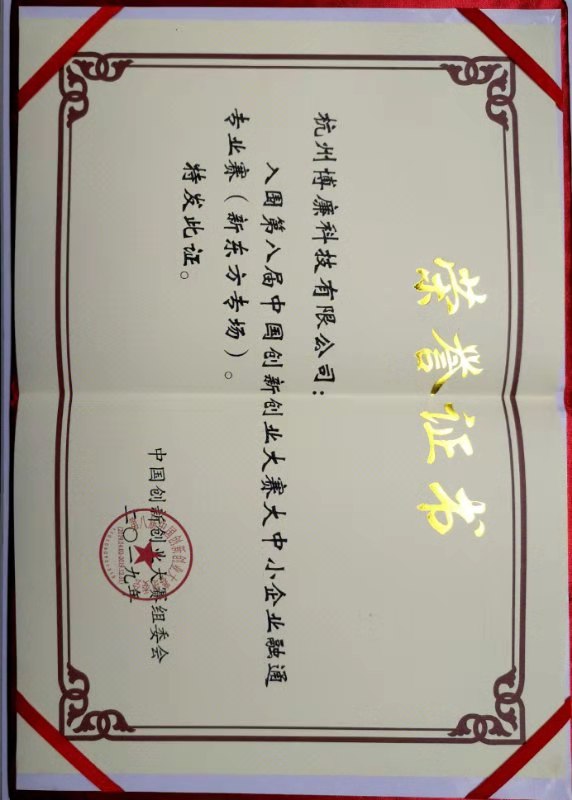 荣誉证书
杭州博廉科技有限公司：
入围第八届中国创新创业大赛大中小企业融通
专业赛（新东方专场）。
特发此证。
中国创新创业大赛组委会
二〇一九年